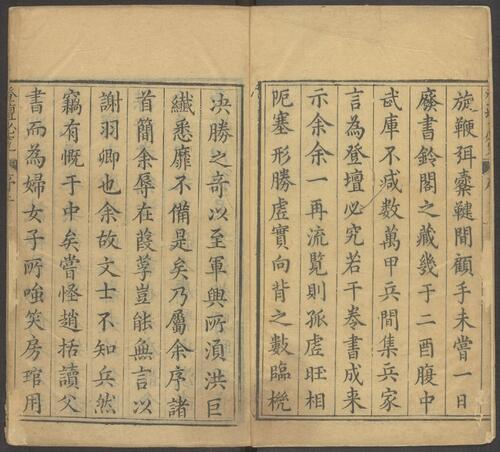 旋鞭弭櫜鞬間顧手未嘗一日
廢書鈴閣之藏幾于二酉腹中
武庫不减數萬甲兵間集兵家
言為登壇必究若干卷書成来
示余余一再流覧則孤虛旺相
阨塞形勝虛實向背之數臨機
决勝之奇以至軍興所須洪巨
纖悉靡不備是矣乃屬余序諸
首簡余辱在葭莩豈能無言以
謝羽卿也余故文士不知兵然
竊有慨于中矣嘗怪趙括讀父
書而為婦女子所嗤笑房琯用